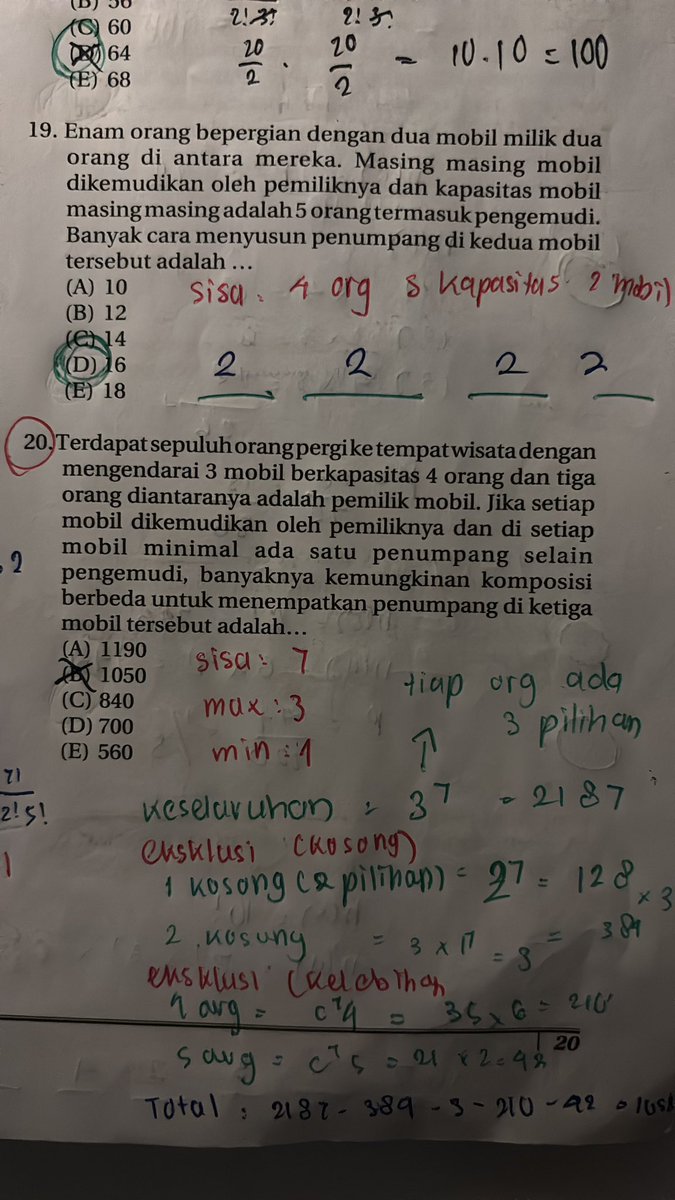 (B) 56
(C) 60
(D) 64
(E) 68
2!.3! 2! 3!
20/2 . 20/2 = 10.10 = 100
19. Enam orang bepergian dengan dua mobil milik dua
orang di antara mereka. Masing masing mobil
dikemudikan oleh pemiliknya dan kapasitas mobil
masing masing adalah 5 orang termasuk pengemudi.
Banyak cara menyusun penumpang di kedua mobil
tersebut adalah ...
(A) 10
(B) 12
(C) 14
(D) 16
(E) 18
sisa : 4 org 8 kapasitas 2 mobil
2 2 2 2
20. Terdapat sepuluh orang pergi ke tempat wisata dengan
mengendarai 3 mobil berkapasitas 4 orang dan tiga
orang diantaranya adalah pemilik mobil. Jika setiap
mobil dikemudikan oleh pemiliknya dan di setiap
mobil minimal ada satu penumpang selain
pengemudi, banyaknya kemungkinan komposisi
berbeda untuk menempatkan penumpang di ketiga
mobil tersebut adalah...
(A) 1190
(B) 1050
(C) 840
(D) 700
(E) 560
sisa : 7
max : 3
min : 1
tiap org ada
3 pilihan
7!
2!5!
keseluruhan = 3⁷ = 2187
eksklusi (kosong)
1 kosong (2 pilihan) = 2⁷ = 128 × 3
2 kosong = 3 × 1⁷ = 3 = 384
eksklusi (kelebihan
4 org = C⁷4 = 35 × 6 = 210
5 org = C⁷5 = 21 × 2 = 42
20
Total : 2187 - 384 - 3 - 210 - 42 =